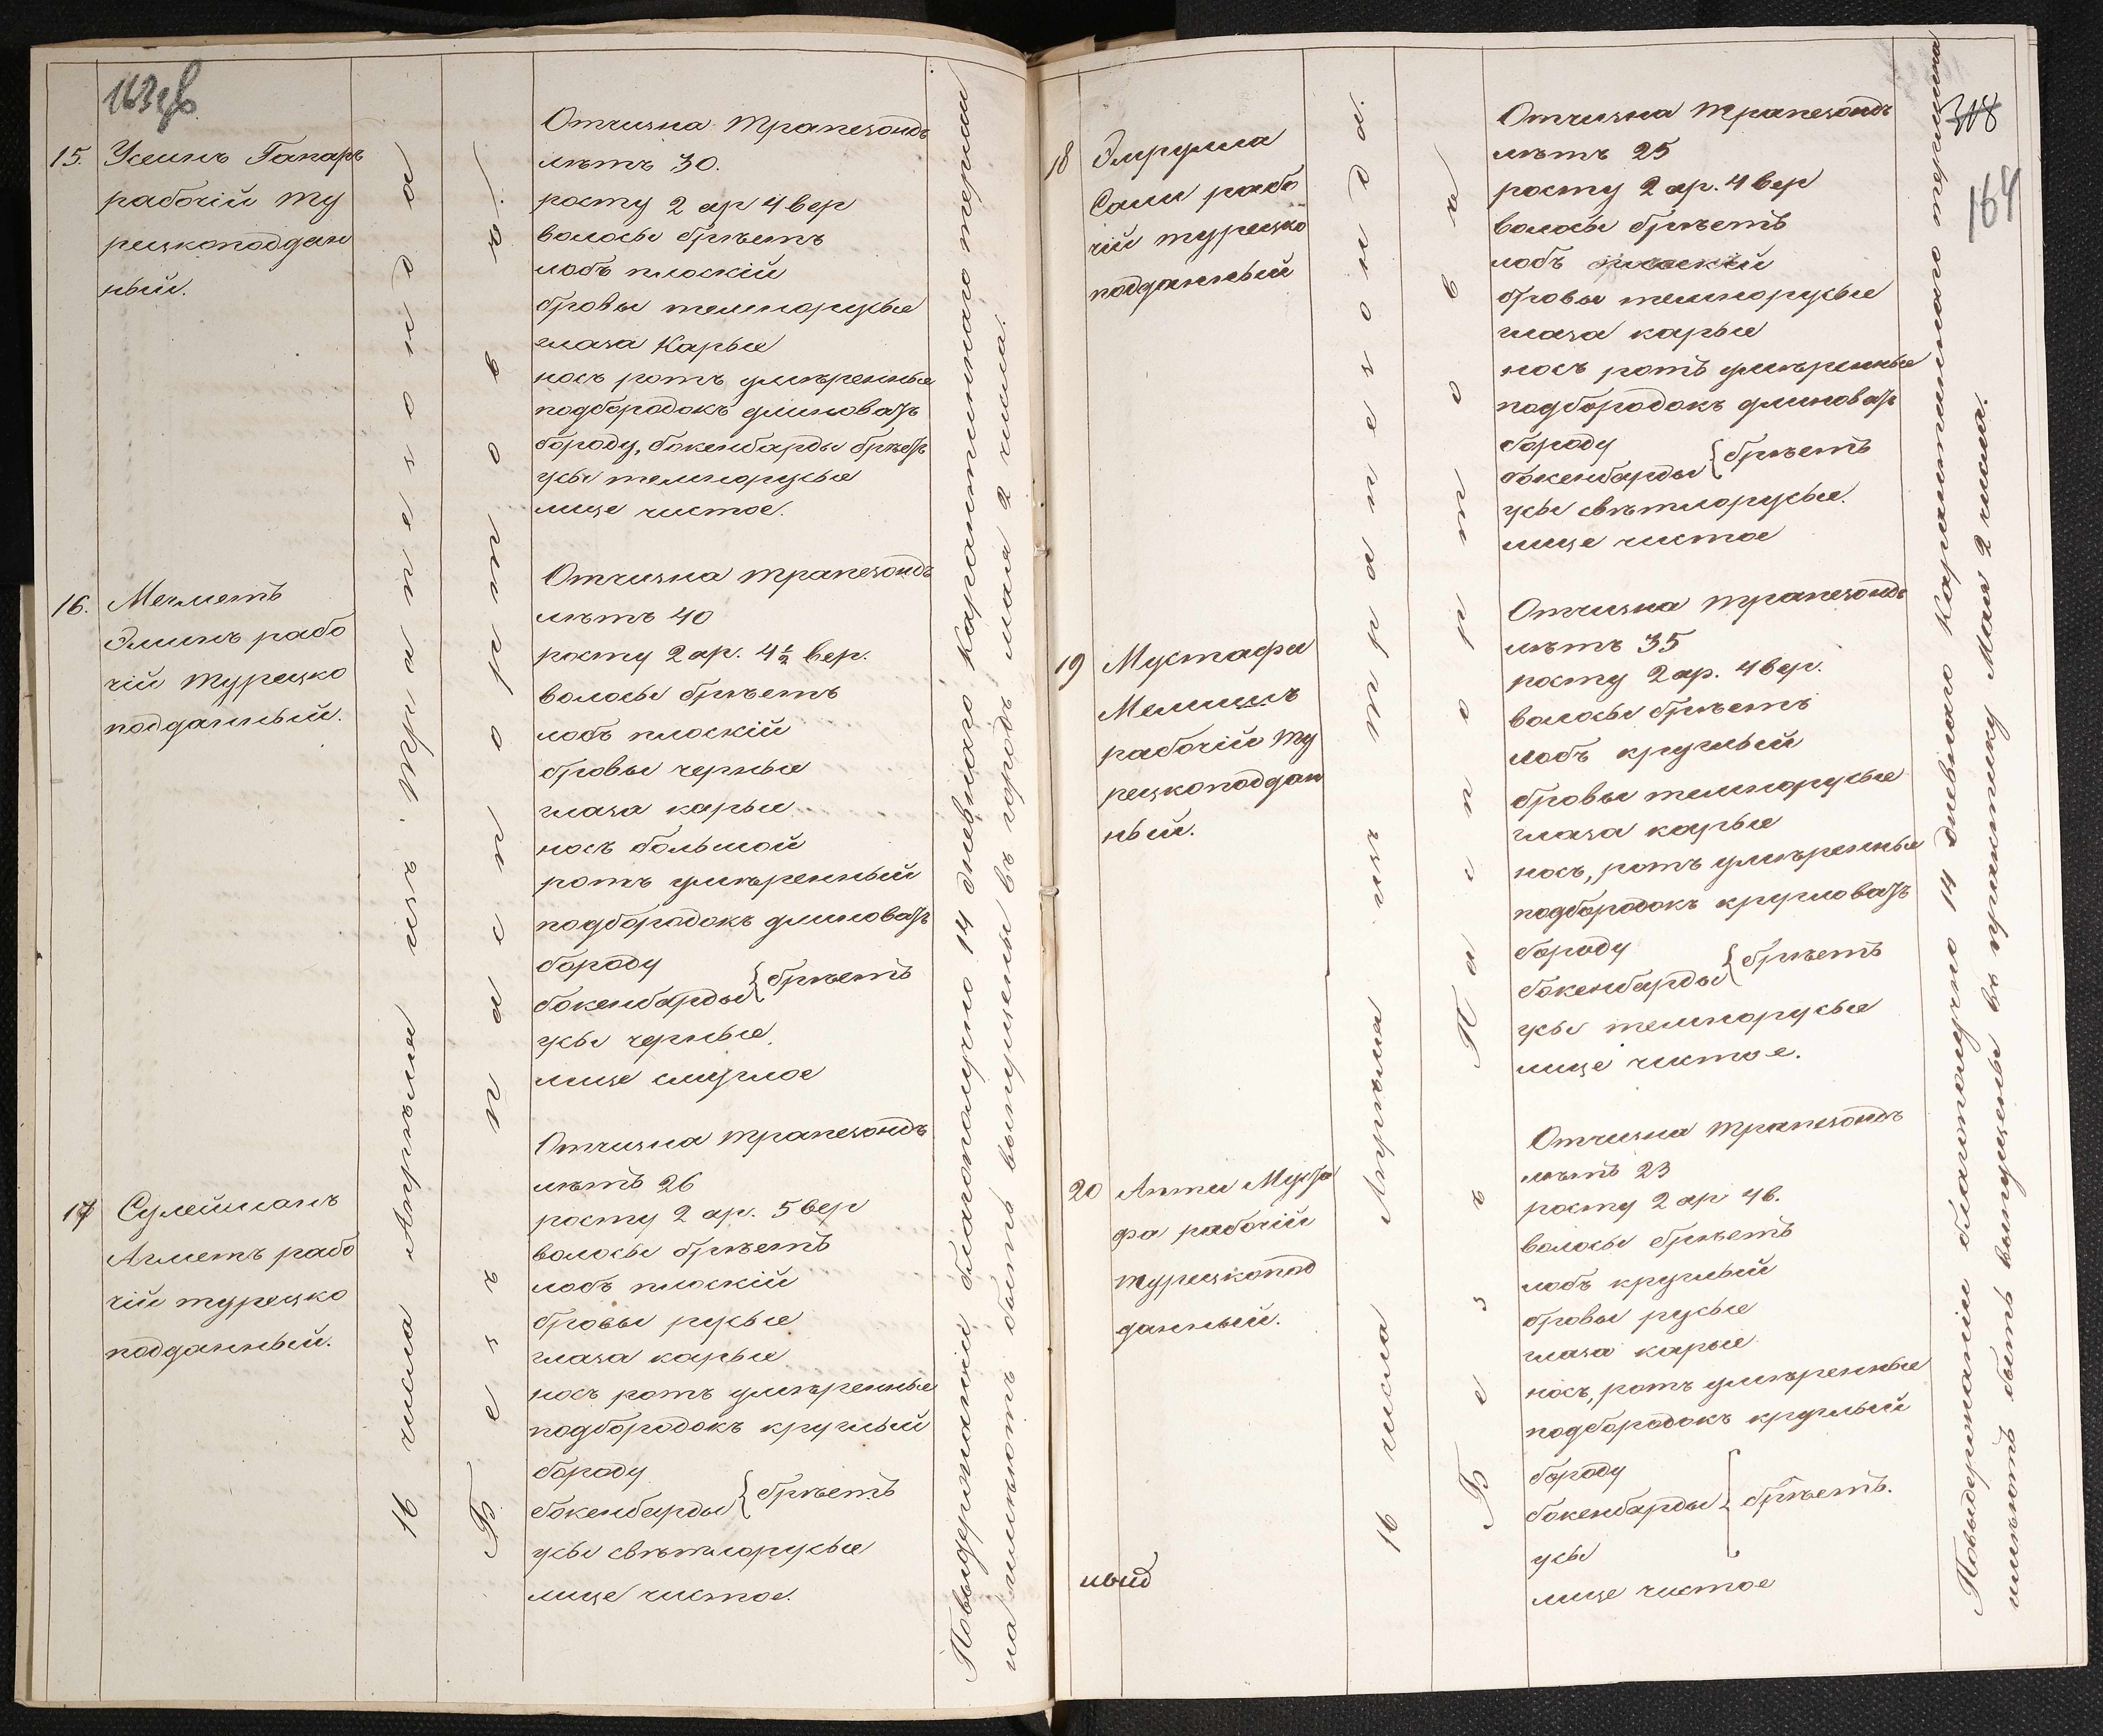 15. Усеинъ Гапаръ
рабочій ту
рецкоподдан
ный.
16 числа Апрѣля изъ Трапезонда
Безъ паспортова.
Отчизна Трапезондъ
лѣтъ 30.
росту 2 ар 4 вер
волосы брѣетъ
лобъ плоскій
бровы темнорусые
глаза Карые
носъ ротъ умѣренные
подбородокъ длиноватъ
бороду, бокенбарды брѣетъ
усы темнорусые
лице чистое.
16. Мегметъ
Эминъ рабо
чій турецко
подданный.
Отчизна Трапезондъ
лѣтъ 40
росту 2 ар. 4½ вер.
волосы брѣетъ
лобъ плоскій
бровы черные
глаза карые
носъ большой
ротъ умѣренный
подбородокъ длиноватъ
бороду
бокенбарды } брѣетъ
усы черные
лице смуглое
17 Сулейманъ
Агметъ рабо
чій турецко
подданный.
Отчизна Трапезондъ
лѣтъ 26
росту 2 ар. 5 вер
волосы брѣетъ
лобъ плоскій
бровы русые
глаза карые
носъ ротъ умѣренные
подбородокъ круглый
бороду
бокенбарды } брѣетъ
усы свѣтлорусые
лице чистое.
Повыдержаніи благополучно 14 дневнаго Карантиннаго термина
имѣютъ быть выпущены въ городъ мая 2 числа.
164
18 Элрулла
Сали рабо
чій турецко
подданный
16 числа Апрѣля изъ Трапезонда.
Безъ Паспортова
Отчизна Трапезондъ
лѣтъ 25
росту 2 ар. 4 вер
волосы брѣетъ
лобъ плоскій
бровы темнорусые
глаза карые
носъ ротъ умѣренные
подбородокъ длиноватъ
бороду
бокенбарды } брѣетъ
усы свѣтлорусые.
лице чистое
19 Мустафа
рабочій ту
рецкоподдан
ный.
Отчизна Трапезондъ
лѣтъ 35
росту 2 ар. 4 вер.
волосы брѣетъ
лобъ круглый
бровы темнорусые
глаза карые
носъ, ротъ умѣренные
подбородокъ кругловатъ
бороду
бокенбарды } брѣетъ
усы темнорусые
лице чистое.
20 Апти Муста
фа рабочій
турецкопод
данный.
Отчизна Трапезондъ
лѣтъ 23
росту 2 ар 4 в.
волосы брѣетъ
лобъ круглый
бровы русые
глаза карые
носъ, ротъ умѣренные
подбородокъ круглый
бороду
бокенбарды } брѣетъ.
усы
лице чистое
Повыдержаніи благополучно 14 дневнаго Карантиннаго термина
имѣютъ быть выпущены въ практику Мая 2 числа.